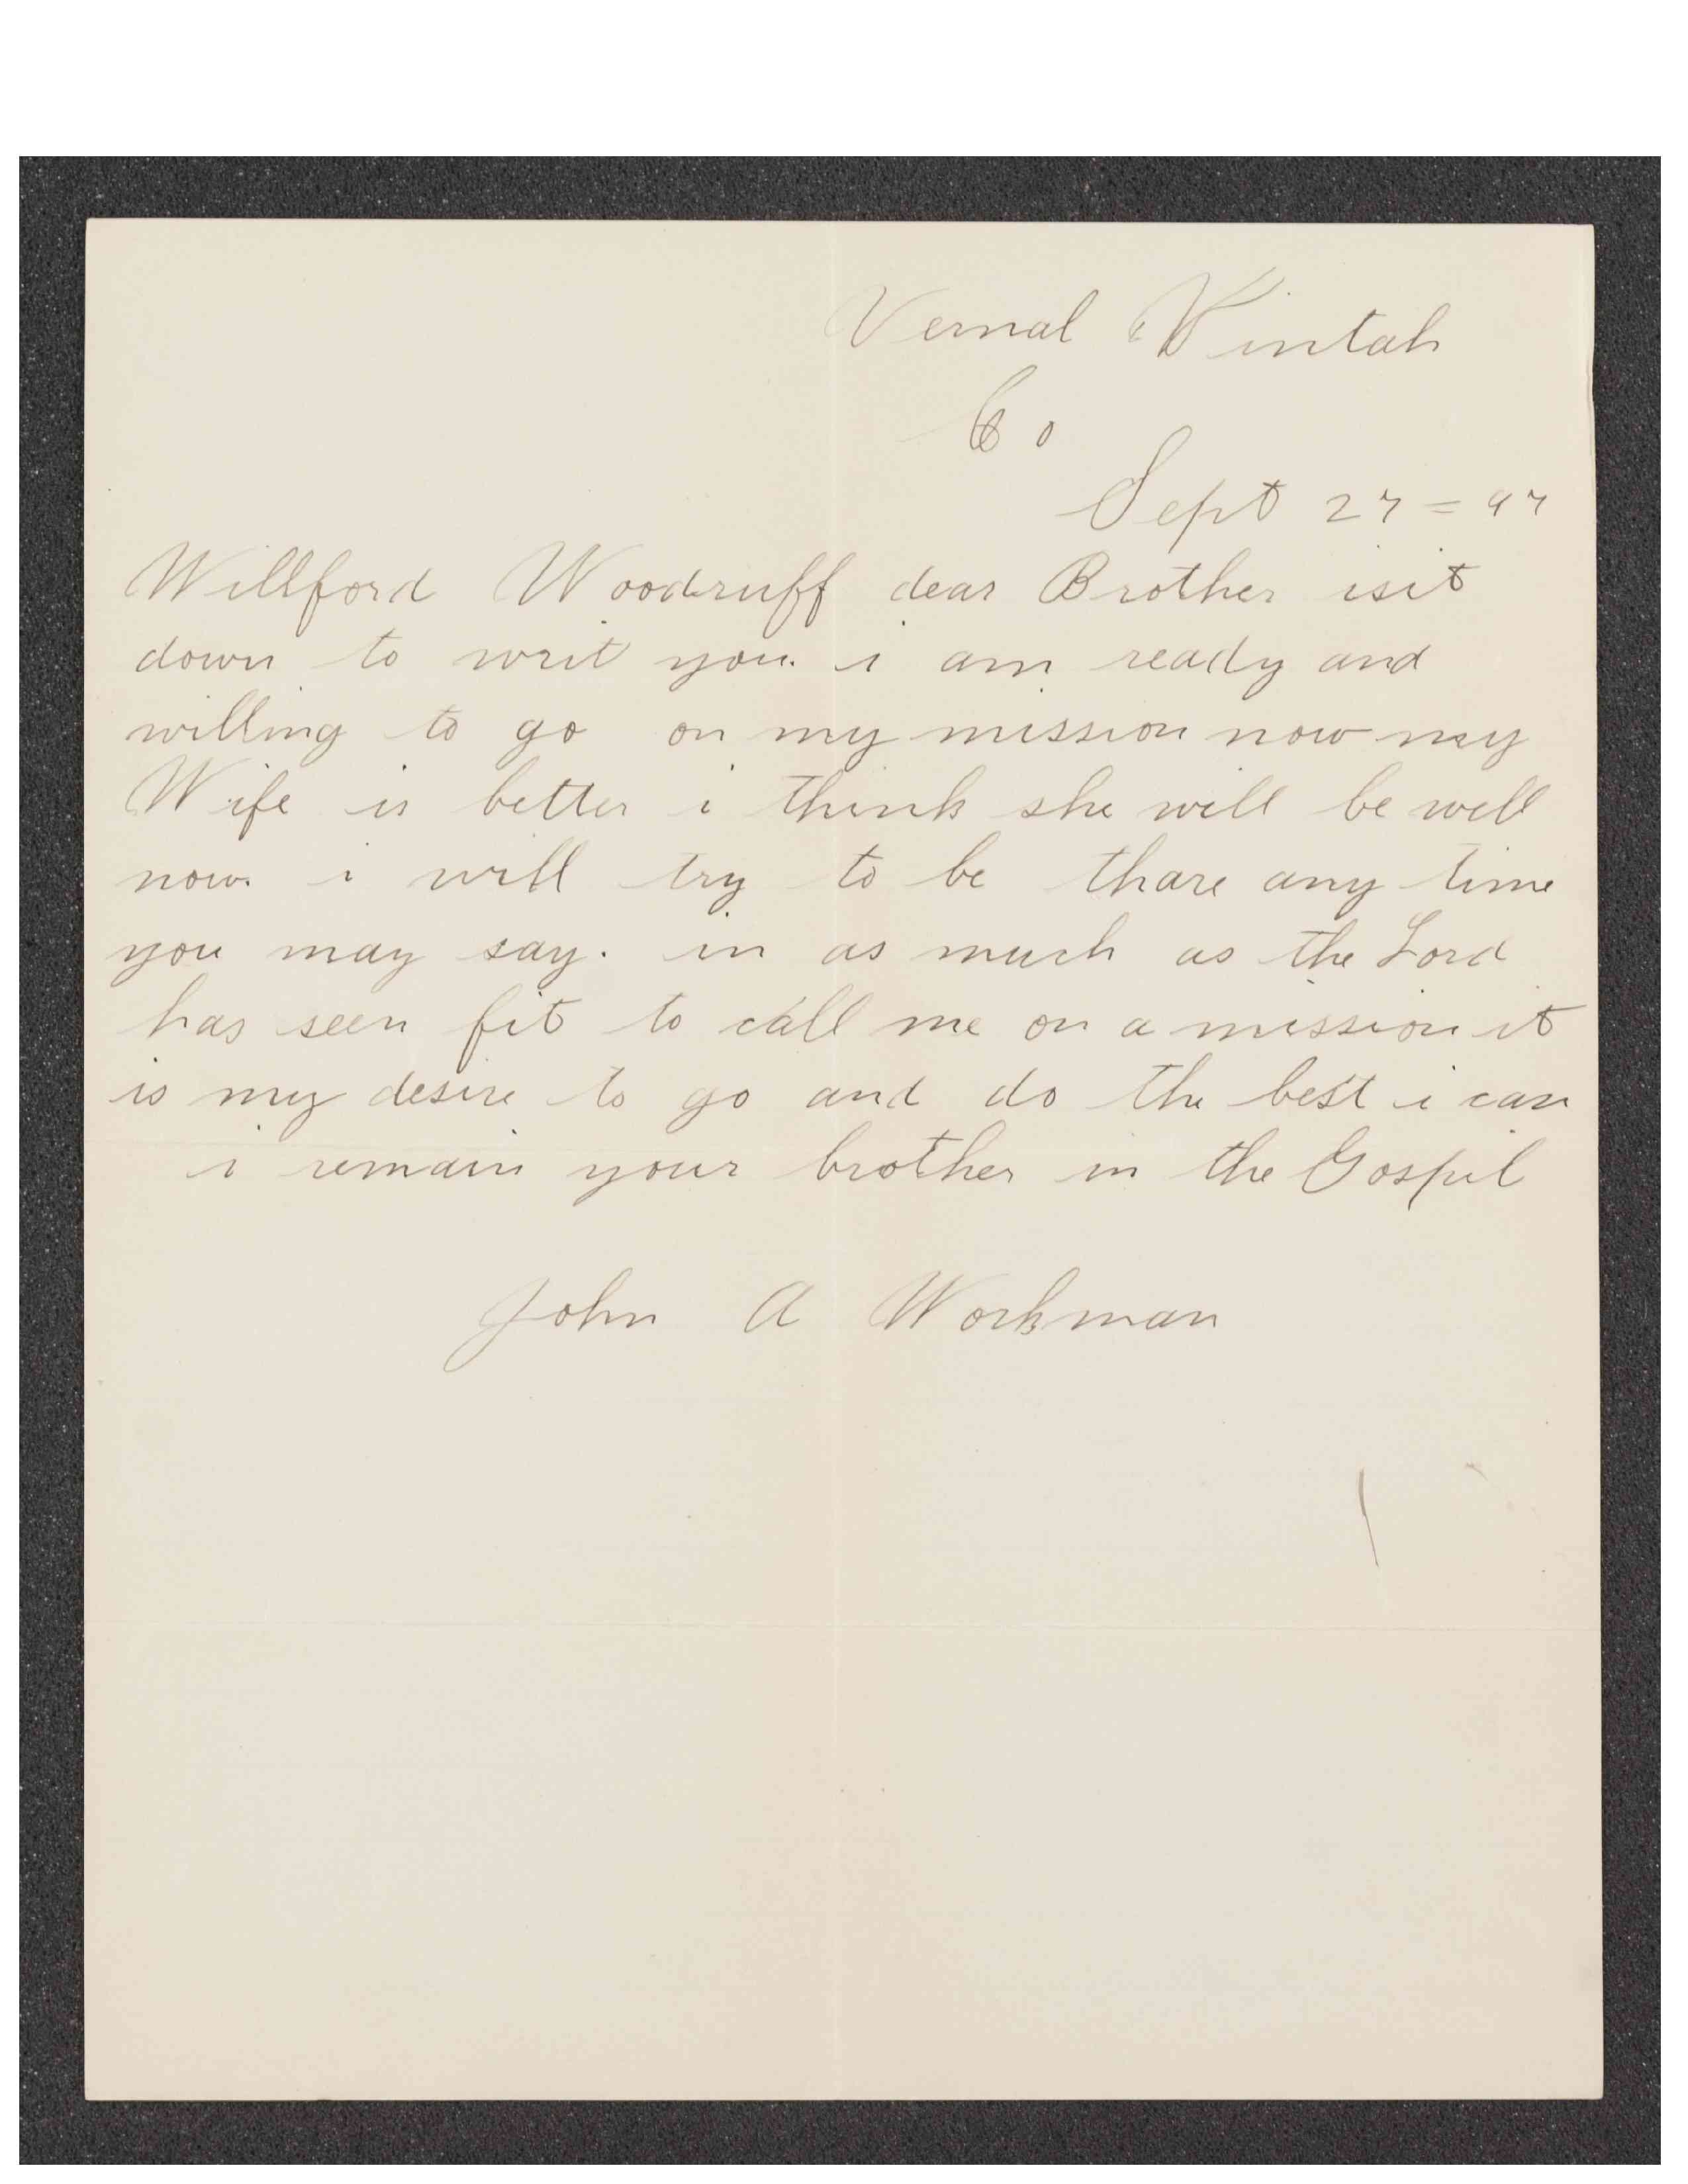 Vernal Uintah
Co
Sept 27 = 97
Willford Woodruff dear Brother isit
down to writ you. i am ready and
willing to go on my mission now my
Wife is better i think she will be well
now. i will try to be thare any time
you may say. in as much as the Lord
has seen fit to call me on a mission it
is my desire to go and do the best i can
i remain your brother in the Gospil
John A Workman